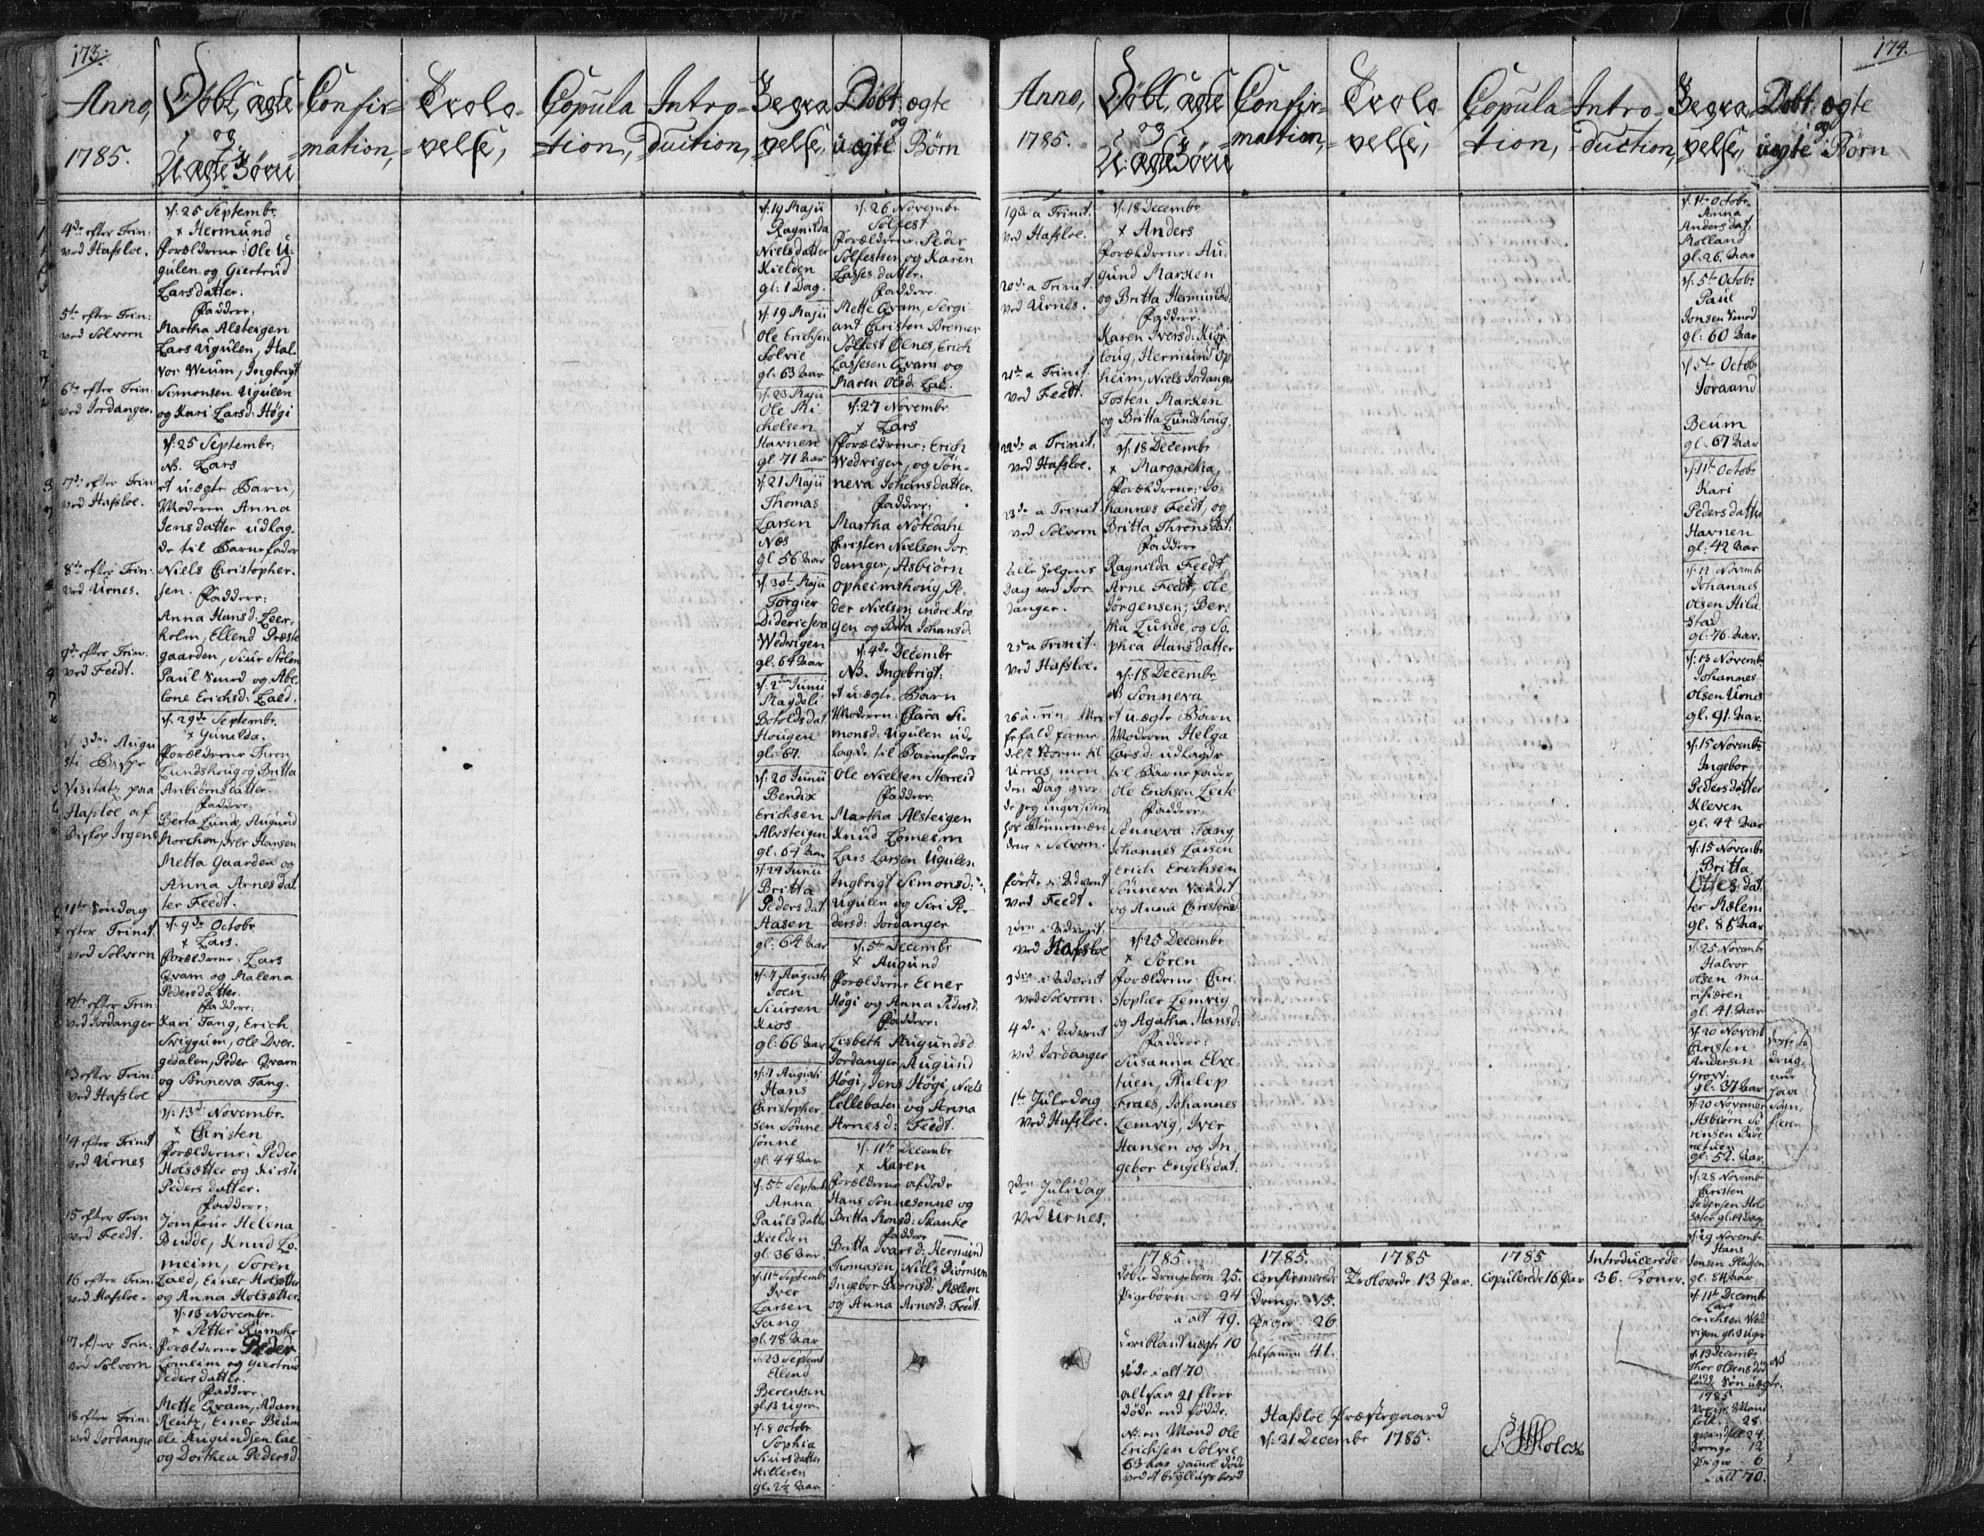 173.
Anno,
1785.
Døbt, ægte
og
Uægte Børn
Confir-
mation,
Trolo-
velse,
Copula
tion,
Intro-
duction,
Begra
velse,
Døbt ægte
og
uægte Børn
4de efter Trin:
ved Hafsloe.
5te efter Trin:
ved Solvorn
6te efter Trin:
ved Jordanger.
7de efter Trin
ved Hafsloe.
8te efter Trin:
ved Urnes.
9de efter Trin.
ved Feedt.
Visitatz paa
Hafsloe af
Biskop Irgens
11te Søndag
efter Trinit.
ved Solvorn
12te efter Trin
ved Jordanger
13 efter Trin:
ved Hafsloe
14 efter Trinit
ved Urnes
15 efter Trin
ved Feedt.
16 efter Trin:
ved Hafsloe.
17 efter Trin:
ved Solvorn
18 efter Trin:
ved Jordanger
d: 25 Septembr.
x Hermund
Forældrene: Ole U-
gulen og Giertrud
Larsdatter.
Faddere:
Martha Alsteigen
Lars Ugulen, Hal-
vor Weum, Ingbrigt
Simonsen Ugulen
og Kari Larsd: Høgi
d: 25 Septembr.
NB. Lars
et uægte Barn,
Moderen Anna
Jensdatter udlag-
de til Barnefader
Niels Christopher-
sen. Faddere:
Anna Hansd: Leer-
holm, Ellend Præste
gaarden, Siur Stolen
Paul Smed og Abe-
lone Erichsd: Lald.
d: 29de Septembr.
x Gunilda.
Forældrene Thron
Lundshoug og Britta
Anbiørnsdatter.
Faddere:
Berta Lunde, Augund
Morchen, Iver Hansen
Metta Gaarden og
Anna Arnesdat-
ter Feedt.
d: 9de Octobr
x Lars.
Forældrene: Lars
Qvam og Malena
Pedersdatter.
Faddere:
Kari Tang, Erich
Sviggum, Ole Dver-
gedalen, Peder Qvam
og Sønneva Tang.
d: 13de Novembr.
x Christen
Forældrene: Peder
Holsætter og Kirsti
Pedersdatter.
Faddere:
Jomfrue Helena
Budde, Knud Lo-
meim, Søren
Lald, Einer Holsætter
og Anna Holsætter.
d: 13 Novembr.
x Petter Rumohr
Forældrene Peder
Lomeim og Giertrud
Pedersdatter.
Faddere.
Mette Qvam, Adam
Reutz, Einer Beum
Ole Augundsen Lae
og Dorthea Pedersd.
d: 19 Maji
Ragnilda
Nielsdatter
Kielden
gl: 1 Dag.
d: 19 Maji
Ole Erichsen
Solvie
gl: 63 Aar
d: 23 Maji
Ole Mi
chelsen
Havnen
gl: 71 Aar
d: 21 Maji
Thomas
Larsen
Næs
gl 56 Aar
d: 30te Maji
Torgier
Diderichsen
Wedvigen
gl: 64 Aar
d: 2den Junii
Magdeli
Botoldsdat
Hougen
gl: 67.
d: 20 Junii
Bendix
Erichsen
Alvsteigen
gl: 64 Aar
d: 24 Junii
Britta
Pedersdat
Aasen
gl: 64 Aar
d: 7 Augusti
Joen
Siursen
Kios
gl: 66 Aar
d: 7 Augusti
Hans
Christopher-
sen Sonne
sønne
gl: 44 Aar
d: 5te Septemb
Anna
Paulsdatter
Kielden
gl: 36 Aar.
d: 11te Septembr
Iver
Larsen
Tang
gl: 78 Aar
d: 23 Septembr
Ellend
Berentsen
gl: 13 Uger.
d: 8 Octobr
Sophia
Siursdatter
Hilleren
gl: 2½ Aar
d: 26 Novembr
Solfest
Forældrene: Peder
Solfestsen og Karen
Lassesdatter.
Faddere
Mette Qvam, Sergi-
ant Christen Bremer
Solfest Olnes, Erich
Lassesen Qvam og
Maren Olsd: Lae.
d: 27 Novembr
x Lars
Forældrene: Erich
Wedvigen, og Søn-
neva Johansdatter.
Faddere:
Martha Notedahl
Christen Nielsen Jor-
danger, Asbiørn
Opheimshoug, Pe-
der Nielsen indre Kro
gen og Brita Johansd.
d: 4de Decembr
NB. Ingebrigt.
et uægte Barn
Moderen: Clara Si-
monsd: Ugulen ud-
lagde til Barnefader
Ole Nielsen Merreid
Faddere:
Martha Alsteigen
Knud Lomeim
Lars Larsen Ugulen
Ingbrigt Simonsd:
Ugulen og Siri Pe-
dersd: Jordanger
d: 5te Decembr
x Augund
Forældrene Einer
Høgi og Anna Pedersd.
Faddere:
Lisbeth Augundsd:
Jordanger, Augund
Høgi, Jens Høgi, Niels
Lillebaten og Anna
Arnesd: Feedt.
d: 11te Decembr
x Karen
Forældrene afdøde
Hans Sonnesonne og
Britta Monsd: Skanke
Faddere
Britta Ivarsd: Hermund
Thomasen, Niels Biørnsen
Ingebor Biørnsd: Mælem
og Anna Arnesd: Feedt.
174.
Anno,
1785.
Døbt, ægte
og
Uægte Børn
Confir-
mation,
Trolo
velse,
Copula
tion,
Intro-
duction,
Begra
velse,
Døbt ægte
og
uægte Børn
19de a Trinit.
ved Hafsloe.
20de a Trinit.
ved Urnes.
21de a Trinit.
ved Feedt.
22de a Trinit.
ved Hafsloe.
23de a Trinit
ved Solvorn
Alle Helgens
Dag ved Jor-
danger.
25 a Trinit.
ved Hafsloe.
Urnes, men
den Dag gior-
de jeg inqvisition
hos Bønnemæn
dene i Solvorn.
første i Advent
ved Feedt.
2den i Advent.
ved Hafsloe
3die i Advent
ved Solvorn.
4de i Advent
ved Jordanger
1te Juledag
ved Hafsloe.
2den Juledag
ved Urnes.
d: 18 Decembr
x Anders
Forældrene: Au-
gund Marsen
og Britta Hermundsd:
Faddere:
Karen Iversd: Kior-
loug, Hermund Op
heim, Niels Jordanger
Tosten Marsen
og Britta Lundshoug.
d: 18 Decembr
x Margaretha,
Forældrene: Jo-
hannes Feedt, og
Britta Thronsdat.
Faddere
Ragnilda Feedt,
Arne Feedt, Ole
Jørgensen, Ber-
tha Lunde, og So-
phia Hansdatter
d: 18 Decembr
NB Sønneva
et uægte Barn
Moderen Helga
Larsd: udlagde
til Barnefader
Ole Erichsen Leite
Faddere:
Sønneva Tang,
Johannes Larsen
Erich Erichsen
Sønneva Vandet
og Anna Christensd
d: 25 Decembr
x Søren
Forældrene: Chri-
stopher Lemvig
og Agatha Hansd:
Faddere:
Susanna Elve-
tuen, Philip
Fraes, Johannes
Lemvig, Iver
Hansen og In-
gebor Engelsdat.
1785.
Døbte Drengebørn 25.
Pigebørn 24
i alt 49.
deriblandt uægte 10
døde i alt 70
altsaa 21 flere
døde end fødde.
NB: en Mand Ole
Erichsen Solvie
63 Aar gammel døde
ved et bryllups bord
1785.
Confirmerede
Drenge 15.
Piger 26
tilsammen 41.
1785
Trolovede 13 Par.
1785
Copulerede 16 Par
Introducerede
36. Koner.
Hafsloe Præstegaard
d: 31 Decembr 1785.
d: 1te Octobr.
Anna
Andersdat.
Molland
gl. 26. Aar
d: 5te Octobr
Paul
Jonsen Smed
gl: 60 Aar
d: 5te Octobr
Jøraand
Beum
gl: 67 Aar
d: 11te Octobr
Kari
Pedersdatter
Havnen
gl: 42 Aar
d: 11 Novembr
Johannes
Olsen Hilde
stad
gl: 76 Aar.
d: 13 Novembr
Johannes
Olsen Urnes
gl: 91 Aar.
d: 15 Novembr
Ingebor
Pedersdatter
Kleven
gl: 44 Aar
d: 15 Novembr
Britta
Ottesdat-
ter Mælem
gl: 85 Aar
d: 25 Novembr
Halvor
Olsen Ma-
rifiæren
gl: 41 Aar
d: 20 Novembr
Christen
Andersen
Grov.
gl: 37 Aar
d: 20 Novembr
Asbiørn Sø-
rensen Bøe
netuen
gl: 52. Aar.
d: 28 Novembr
Christen
Pedersen Hol-
sæter gl: 14 Dag
d: 29 Novembr
Hans
Jensen Flahsen
gl: 84 Aar
d: 11te Decembr
Lars
Erichsen Wed-
vigen gl: 3 Uger
d: 13 Decembr
Thor Olsens død-
fødde Søn uægte.
NB
1785
Voxne Mand
folk 28.
qvindfolk 24.
Drenge 12
Piger 6
i alt 70.